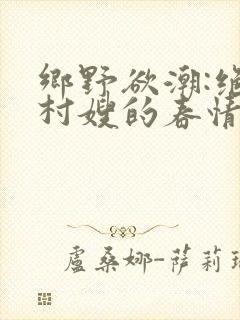 鄉野欲潮:絕
村嫂的春情
盧桑娜-薩莉瑞